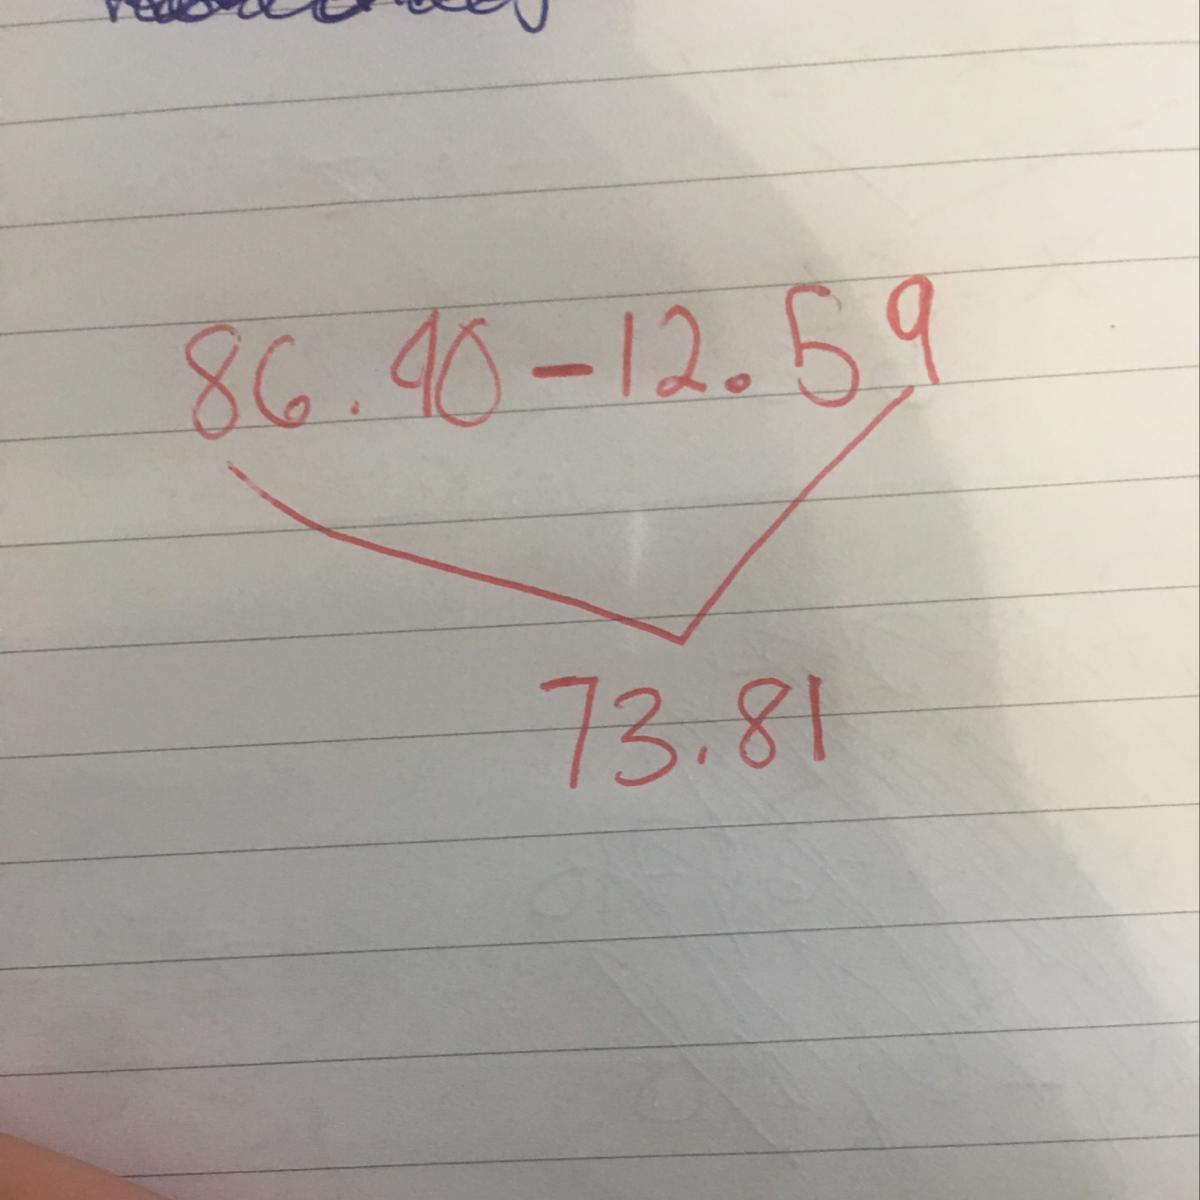 86.40-12.59
73.81